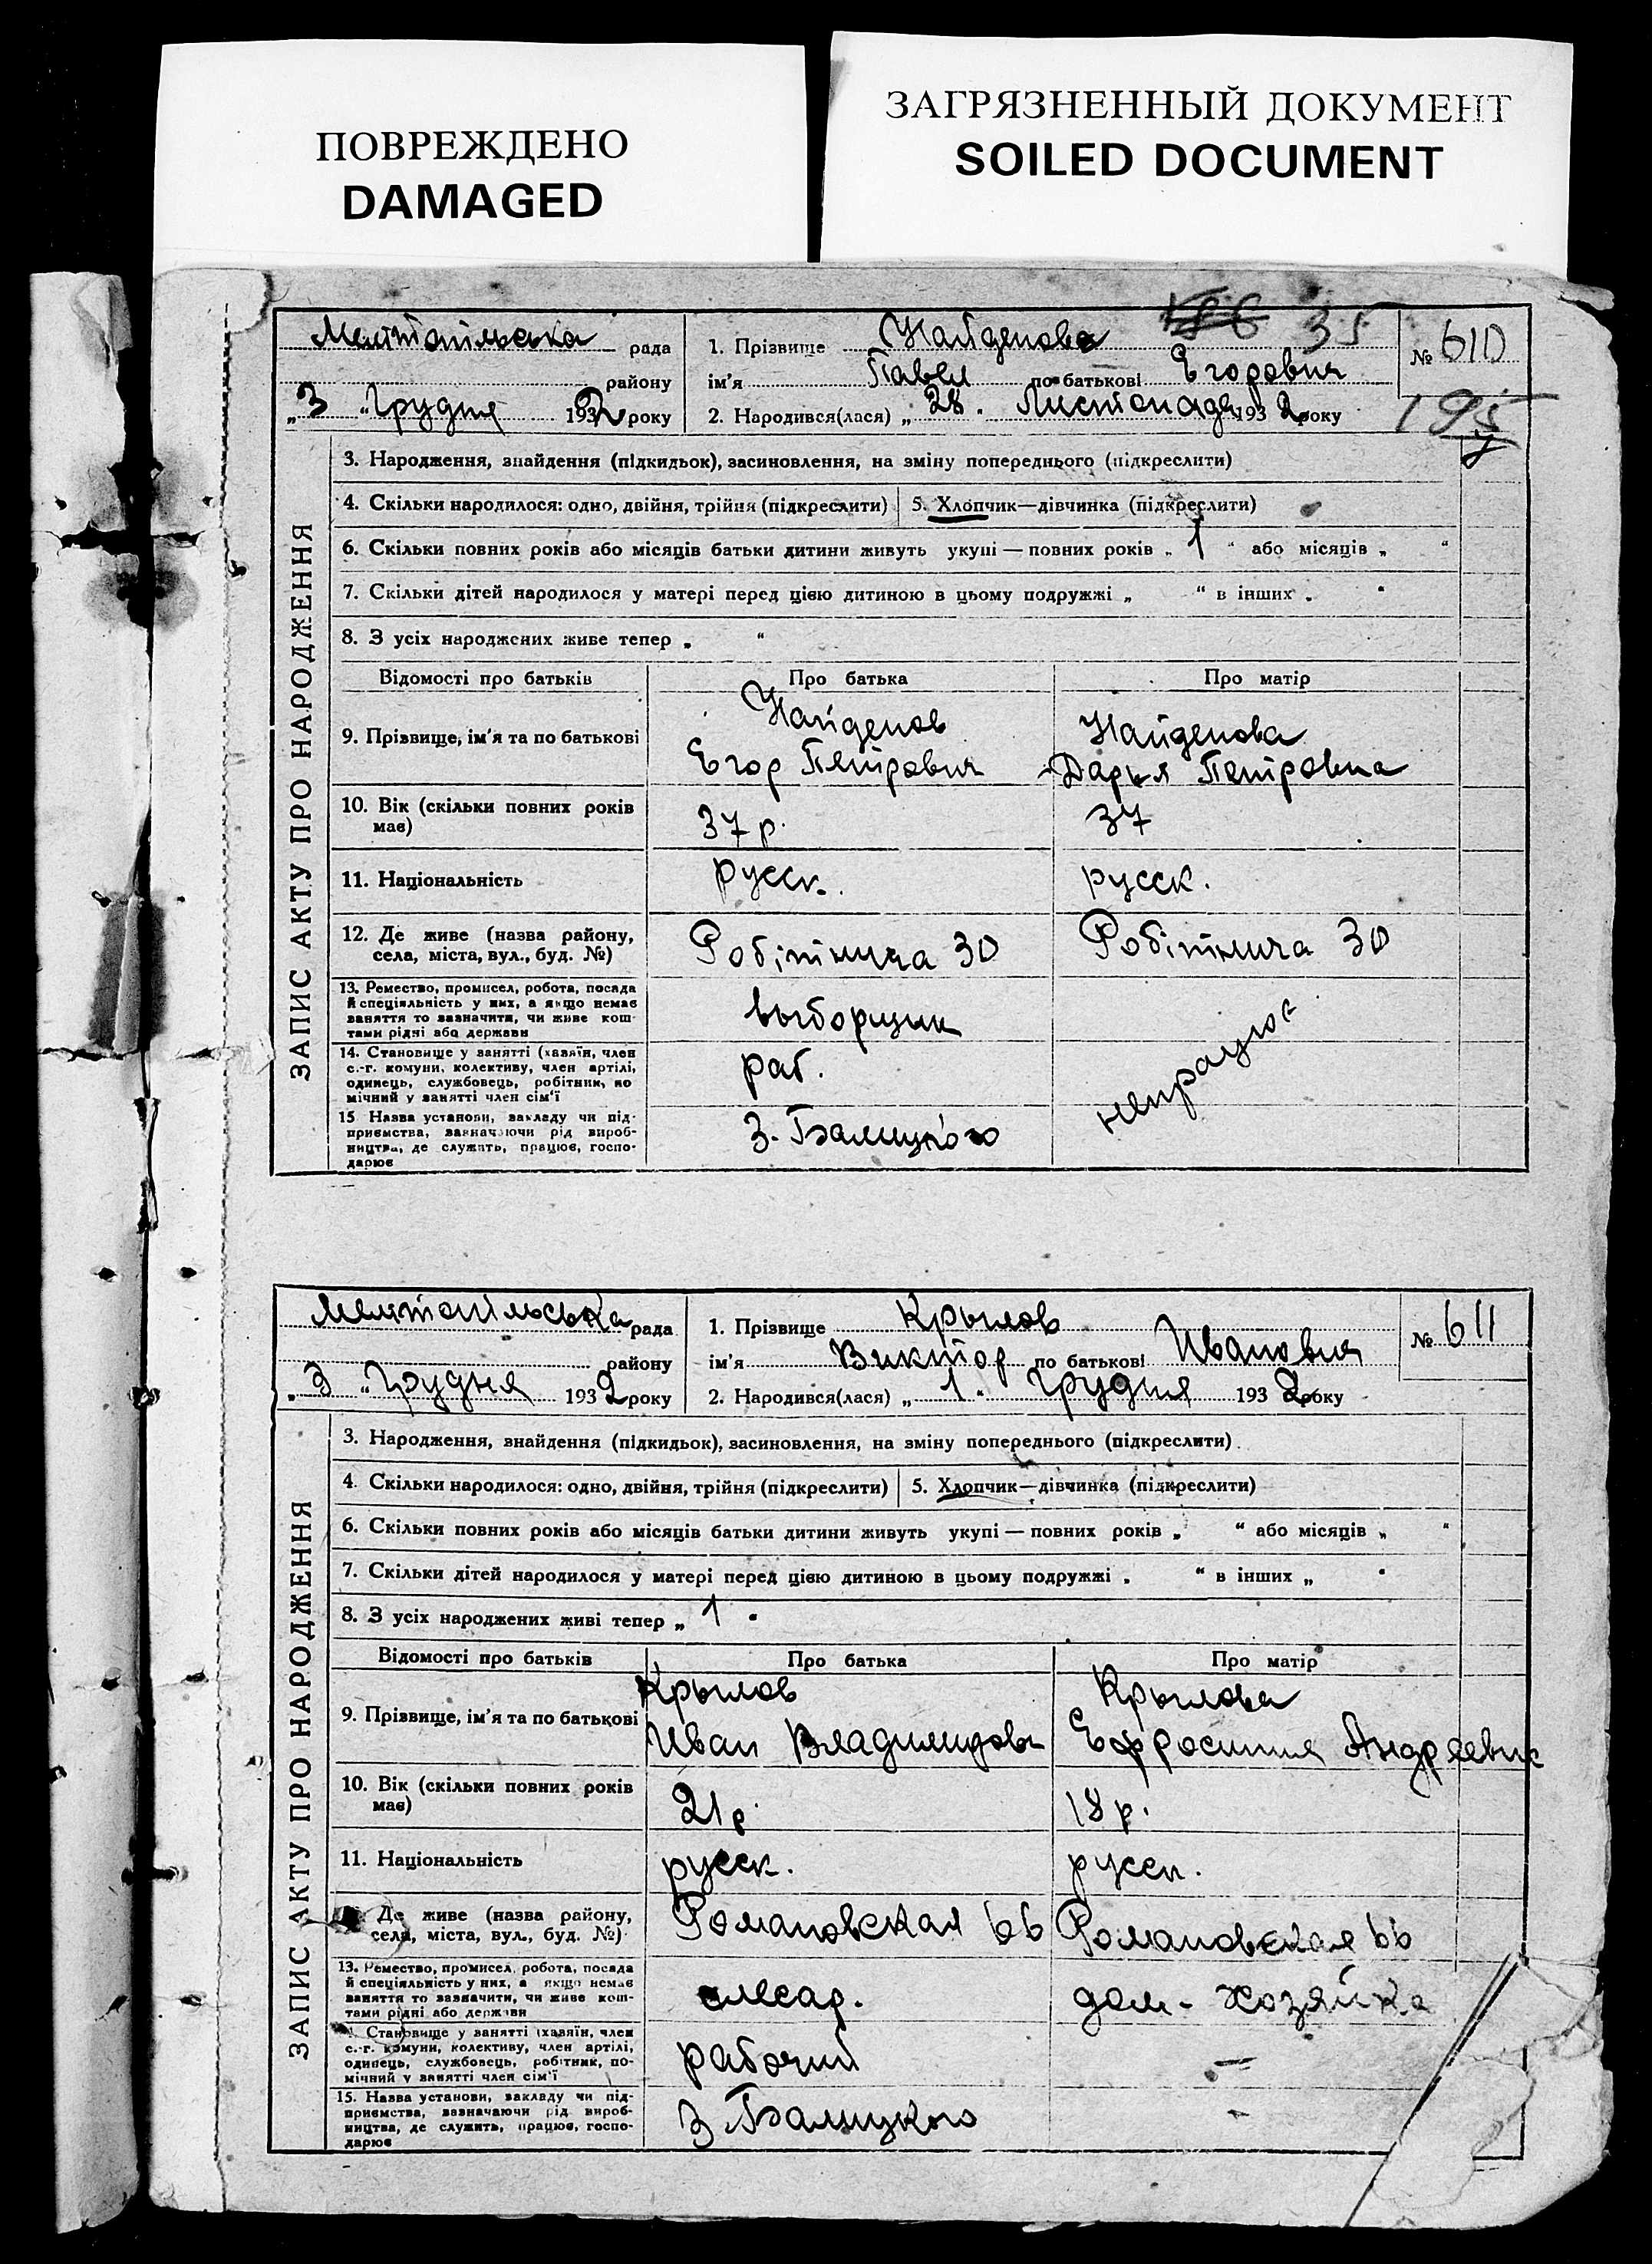 ПОВРЕЖДЕНО
DAMAGED
ЗАГРЯЗНЕННЫЙ ДОКУМЕНТ
SOILED DOCUMENT
35
Мелітопільська рада
району
„3 “ Грудня 1932 року
1. Прізвище Найденов
ім'я Павел по батькові Егорович
2. Народився(лася) „ 28 “ Листопада 1932 року
№ 610
195
ЗАПИС АКТУ ПРО НАРОДЖЕННЯ
3. Народження, знайдення (підкидьок), засиновлення, на зміну попереднього (підкреслити)
4. Скільки народилося: одно, двійня, трійня (підкреслити) 5. Хлопчик—дівчинка (підкреслити)
6. Скільки повних років або місяців батьки дитини живуть укупі — повних років „ 1 “ або місяців „ “
7. Скільки дітей народилося у матері перед цією дитиною в цьому подружжі „ “ в інших „ “
8. З усіх народжених живе тепер „ “
Відомості про батьків Про батька Про матір
9. Прізвище, ім'я та по батькові
Найденов
Егор Петрович
Найденова
Дарья Петровна
10. Вік (скільки повних років
має)
37 р.
37
11. Національність русск. русск.
12. Де живе (назва району,
села, міста, вул., буд. №)
Робітнича 30 Робітнича 30
13. Ремество, промисел, робота, посада
й спеціяльність у них, а якщо немає
заняття то зазначити, чи живе кош-
тами рідні або держави
выборщик
непрацює
14. Становище у занятті (хазяїн, член
с.-г. комуни, колективу, член артілі,
одинець, службовець, робітник, по
мічний у занятті член сім'ї
раб.
15 Назва установи, закладу чи під-
приємства, зазначаючи рід вироб-
ництва, де служить, працює, госпо-
дарює
З. Балицкого
Мелітопільська рада
району
„ 3 “ Грудня 1932 року
1. Прізвище Крылов
ім'я Виктор по батькові Иванович
2. Народився(лася) „ 1 “ Грудня 1932 року
№ 611
ЗАПИС АКТУ ПРО НАРОДЖЕННЯ
3. Народження, знайдення (підкидьок), засиновлення, на зміну попереднього (підкреслити)
4. Скільки народилося: одно, двійня, трійня (підкреслити) 5. Хлопчик—дівчинка (підкреслити)
6. Скільки повних років або місяців батьки дитини живуть укупі — повних років „ “ або місяців „ “
7. Скільки дітей народилося у матері перед цією дитиною в цьому подружжі „ “ в інших „ “
8. З усіх народжених живі тепер „ 1 “
Відомості про батьків Про батька Про матір
9. Прізвище, ім'я та по батькові
Крылов
Иван Владимирович
Крылова
Ефросиния Андреевна
10. Вік (скільки повних років
має)
21 р. 18 р.
11. Національність русск. русск.
Де живе (назва району,
села, міста, вул., буд. №)
Романовская 66 Романовская 66
13. Ремество, промисел, робота, посада
й спеціяльність у них, а якщо немає
заняття то зазначити, чи живе кош-
тами рідні або держави
слесар. дом. хозяйка
Становище у занятті (хазяїн, член
с.-г. комуни, колективу, член артілі,
одинець, службовець, робітник, по-
мічний у занятті член сім'ї
рабочий —
15. Назва установи, закладу чи під-
приємства, зазначаючи рід вироб-
ництва, де служить, працює, госпо-
дарює
З Балицкого -